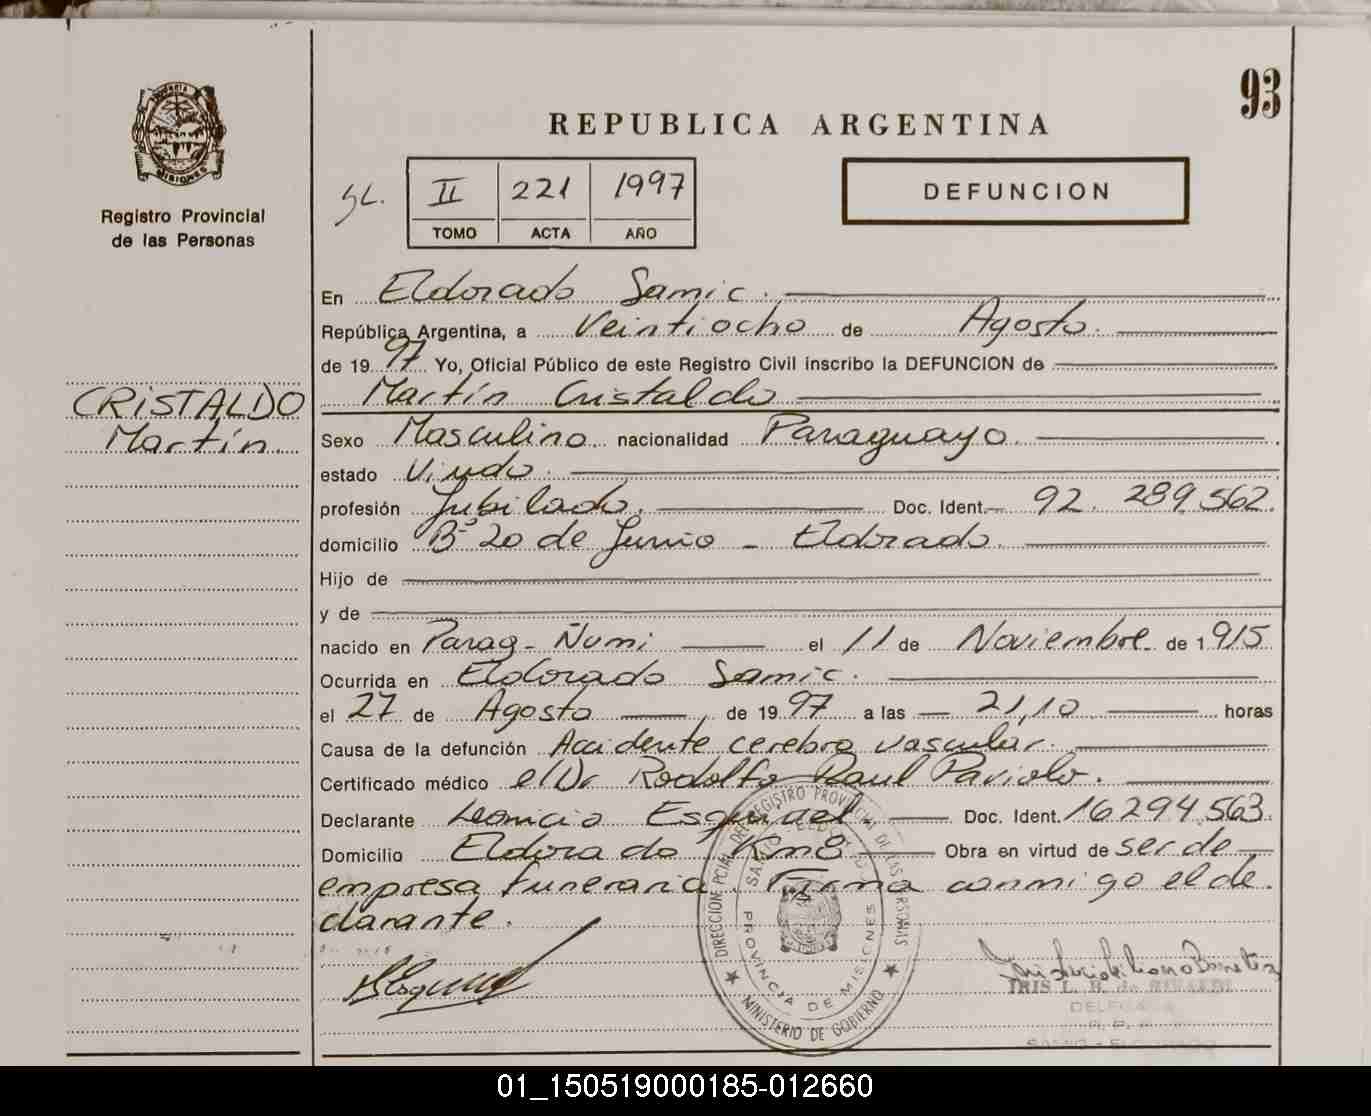 93
REPUBLICA ARGENTINA
MISIONES
Registro Provincial
de las Personas
SL.
II 221 1997
TOMO ACTA AÑO
DEFUNCION
En Eldorado Samic.
República Argentina, a Veintiocho de Agosto.
de 1997 Yo, Oficial Público de este Registro Civil inscribo la DEFUNCION de
CRISTALDO
Martín
Martín Cristaldo
Sexo Masculino nacionalidad Paraguayo.
estado Viudo.
profesión Jubilado. Doc. Ident. 92.289.562.
domicilio Bº 20 de Junio - Eldorado.
Hijo de
y de
nacido en Parag- Ñumi el 11 de Noviembre de 1915
Ocurrida en Eldorado Samic.
el 27 de Agosto, de 1997 a las 21,10 horas
Causa de la defunción Accidente cerebro vascular.
Certificado médico el Dr Rodolfo Raul
Declarante Leoncio Esquivel. Doc. Ident. 16294.563.
Domicilio Eldorado Km8 Obra en virtud de ser de
empresa funeraria. Firma conmigo el de
clarante.
DIRECCION PCIAL DEL REGISTRO PROVINCIAL DE LAS PERSONAS
PROVINCIA DE MISIONES
MINISTERIO DE GOBIERNO
IRIS L. B. de RINALDI
DELEGADA
SAMIC - ELDORADO
01_150519000185-012660